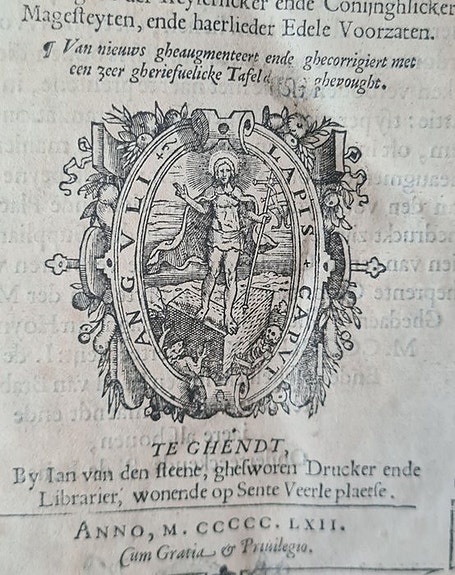 der Keyserlicker ende Conijnghlicker
Magesteyten, ende haerlieder Edele Voorzaten.
¶ Van nieuws gheaugmenteert ende ghecorrigiert met
een zeer gheriefuelicke Tafel ghevought.
ANGVLI LAPIS CAPVT
TE GHENDT,
By Ian van den steene, ghesworen Drucker ende
Librarier, wonende op Sente Veerle plaetse.
ANNO, M. CCCCC. LXII.
Cum Gratia & Priuilegio.